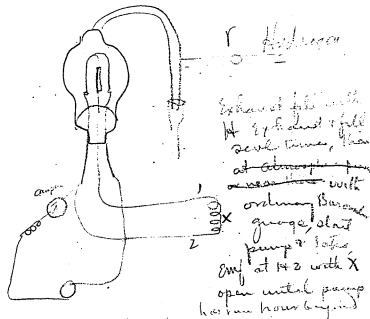 r Hydrogen
Exhaust fill with
H Exhaust & fill
sevl times, then
at atmospheric
with
ordinary Barometer
guage, start
pump &
Emf at H 2 with X
open until pump
has run hour beyond
amp
1
X
2